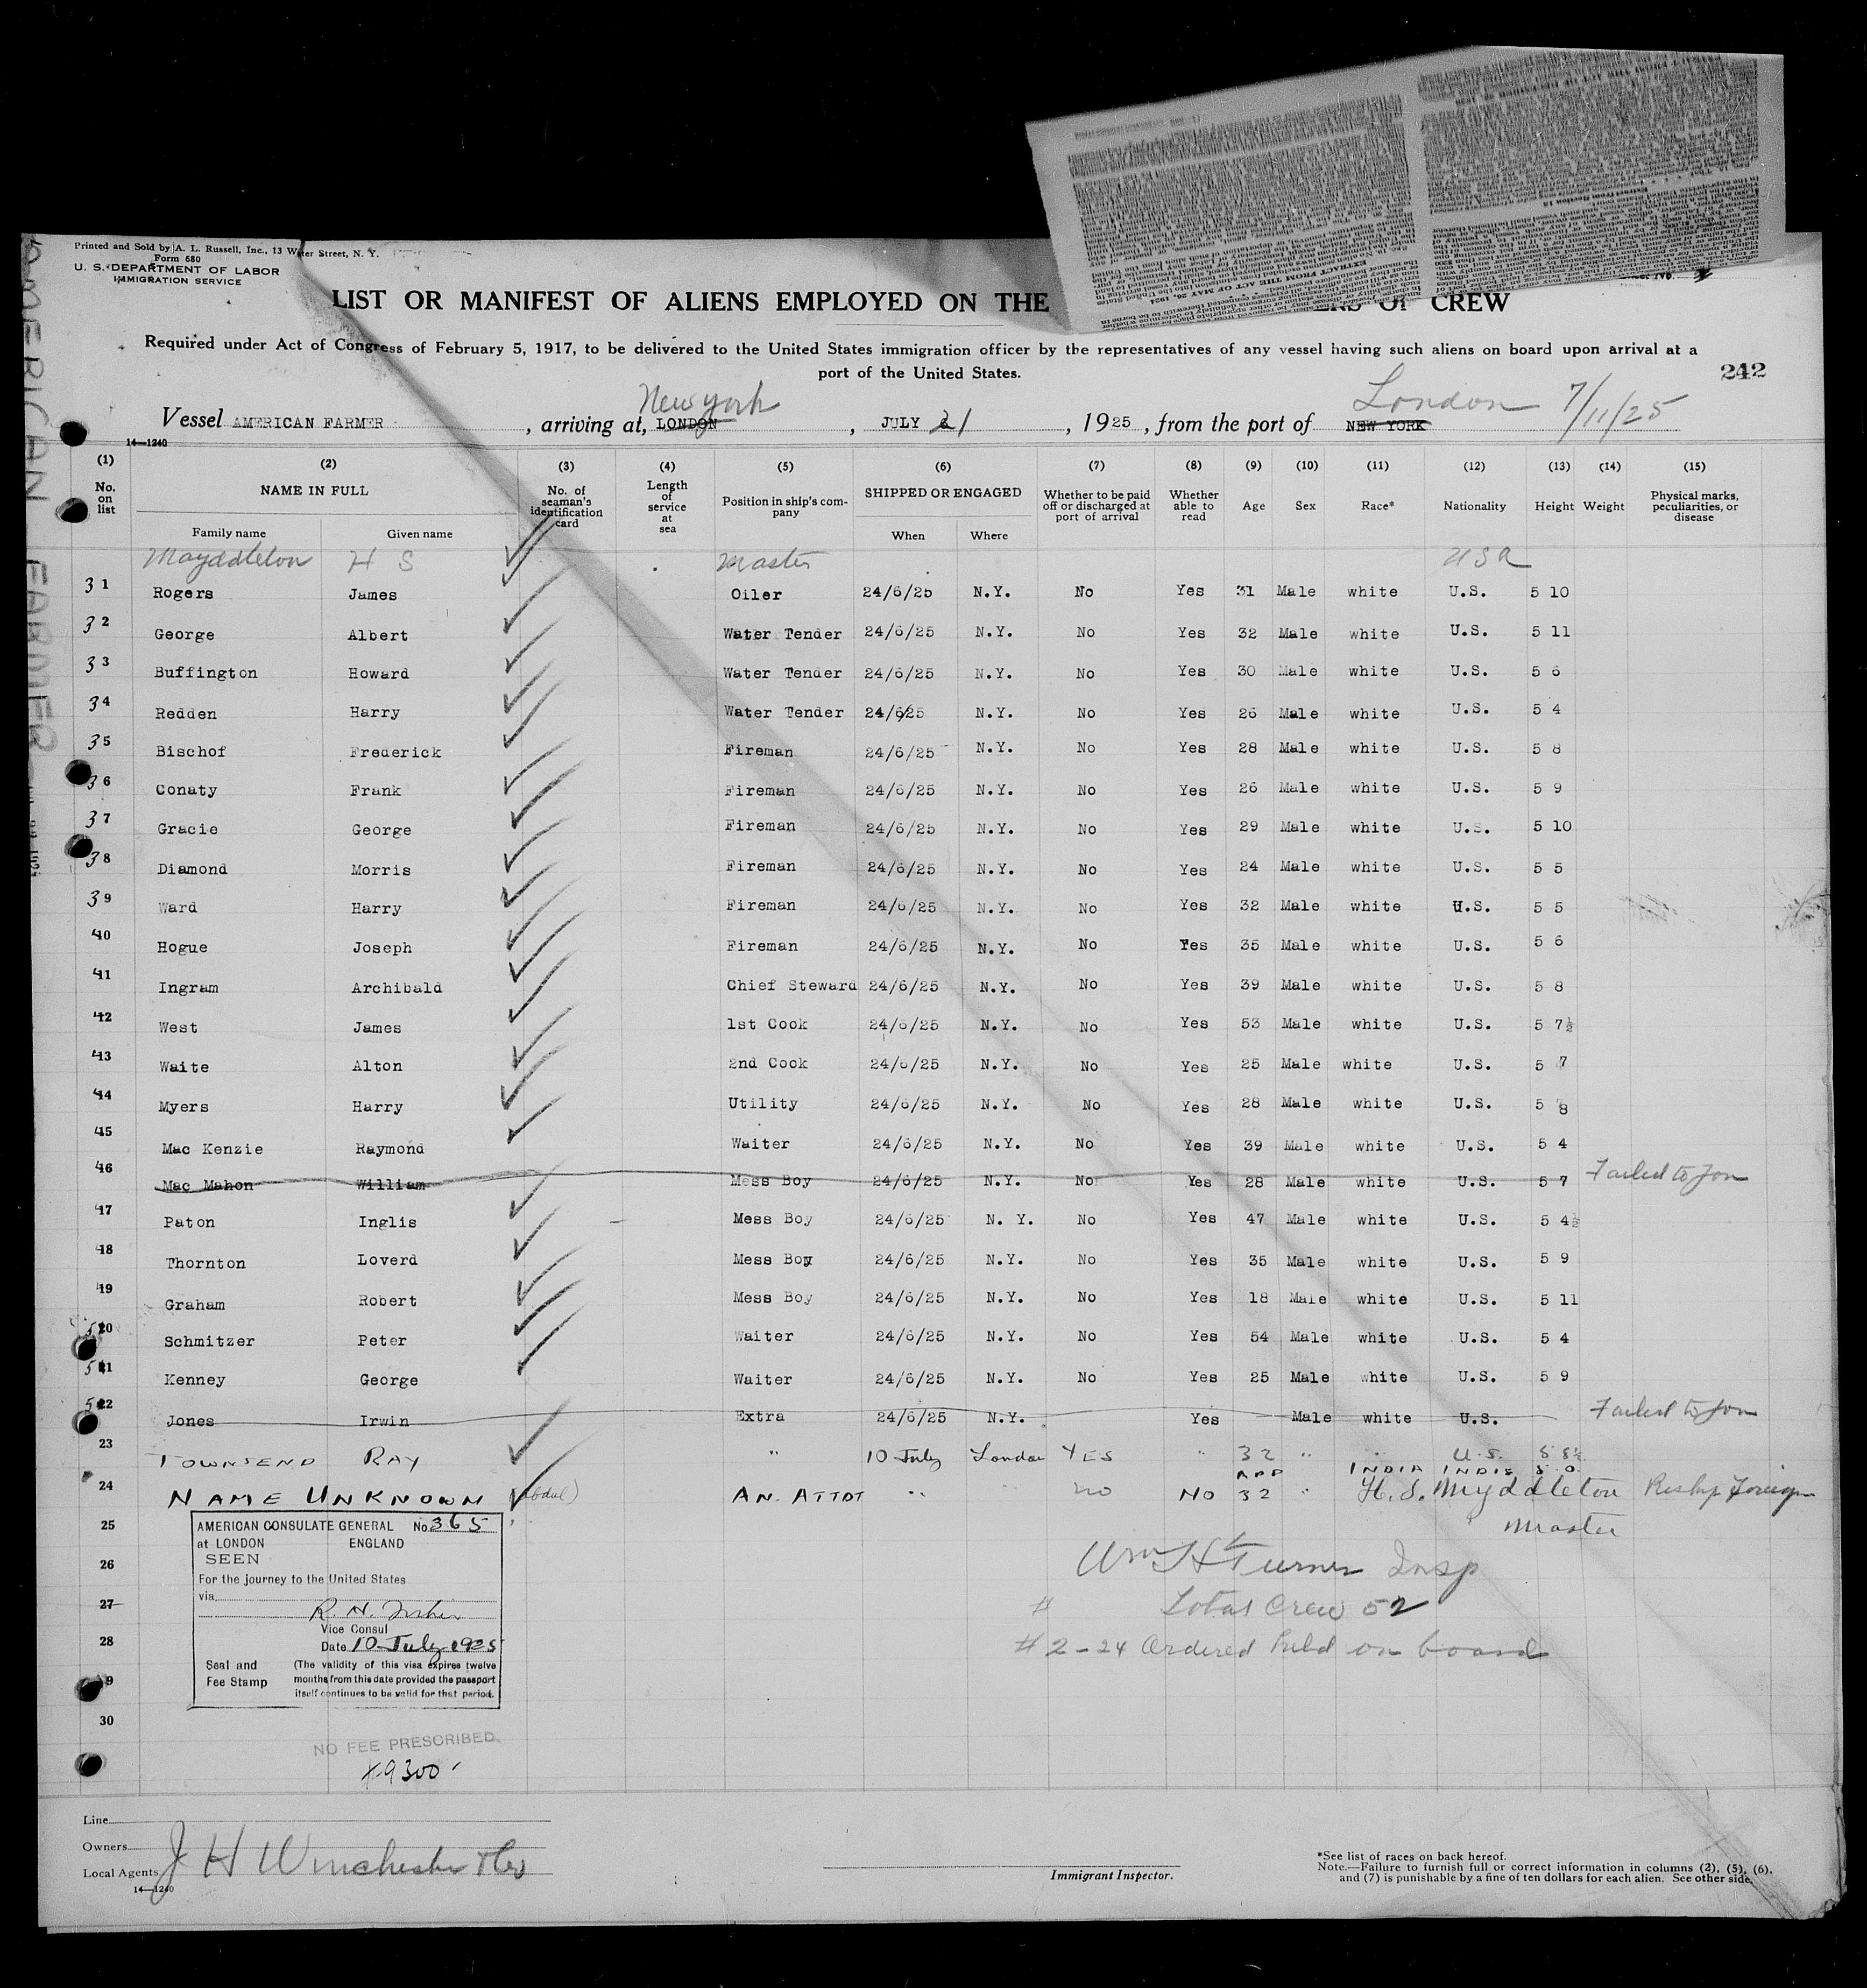 Printed and Sold by A. L. Russell, Inc., 13 Water Street, N. Y.
Form 680
U. S. DEPARTMENT OF LABOR
IMMIGRATION SERVICE
LIST OR MANIFEST OF ALIENS EMPLOYED ON THE OF CREW
Required under Act of Congress of February 5, 1917, to be delivered to the United States immigration officer by the representatives of any vessel having such aliens on board upon arrival at a
port of the United States.
242
Vessel AMERICAN FARMER, arriving at, LONDON New York, JULY 21, 1925, from the port of NEW YORK London 7/11/25
14—1240
(1) (2) (3) (4) (5) (6) (7) (8) (9) (10) (11) (12) (13) (14) (15)
No. on list NAME IN FULL Family name Given name No. of seaman's identification card Length of service at sea Position in ship's company SHIPPED OR ENGAGED When Where Whether to be paid off or discharged at port of arrival Whether able to read Age Sex Race* Nationality Height Weight Physical marks, peculiarities, or disease
Mayddleton H S Master USA
31 Rogers James Oiler 24/6/25 N.Y. No Yes 31 Male white U.S. 5 10
32 George Albert Water Tender 24/6/25 N.Y. No Yes 32 Male white U.S. 5 11
33 Buffington Howard Water Tender 24/6/25 N.Y. No Yes 30 Male white U.S. 5 6
34 Redden Harry Water Tender 24/6/25 N.Y. No Yes 26 Male white U.S. 5 4
35 Bischof Frederick Fireman 24/6/25 N.Y. No Yes 28 Male white U.S. 5 8
36 Conaty Frank Fireman 24/6/25 N.Y. No Yes 26 Male white U.S. 5 9
37 Gracie George Fireman 24/6/25 N.Y. No Yes 29 Male white U.S. 5 10
38 Diamond Morris Fireman 24/6/25 N.Y. No Yes 24 Male white U.S. 5 5
39 Ward Harry Fireman 24/6/25 N.Y. No Yes 32 Male white U.S. 5 5
40 Hogue Joseph Fireman 24/6/25 N.Y. No Yes 35 Male white U.S. 5 6
41 Ingram Archibald Chief Steward 24/6/25 N.Y. No Yes 39 Male white U.S. 5 8
42 West James 1st Cook 24/6/25 N.Y. No Yes 53 Male white U.S. 5 7½
43 Waite Alton 2nd Cook 24/6/25 N.Y. No Yes 25 Male white U.S. 5 7
44 Myers Harry Utility 24/6/25 N.Y. No Yes 28 Male white U.S. 5 8
45 Mac Kenzie Raymond Waiter 24/6/25 N.Y. No Yes 39 Male white U.S. 5 4
46 Mac Mahon William Mess Boy 24/6/25 N.Y. No Yes 28 Male white U.S. 5 7 Failed to Join
47 Paton Inglis Mess Boy 24/6/25 N. Y. No Yes 47 Male white U.S. 5 4½
48 Thornton Loverd Mess Boy 24/6/25 N.Y. No Yes 35 Male white U.S. 5 9
49 Graham Robert Mess Boy 24/6/25 N.Y. No Yes 18 Male white U.S. 5 11
50 Schmitzer Peter Waiter 24/6/25 N.Y. No Yes 54 Male white U.S. 5 4
51 Kenney George Waiter 24/6/25 N.Y. No Yes 25 Male white U.S. 5 9
52 Jones Irwin Extra 24/6/25 N.Y. Yes Male white U.S. Failed to Join
23 TOWNSEND RAY " 10 July London YES " 32 " " U.S. 5 8½
24 NAME UNKNOWN (Abdul) AN. ATTDT " " NO NO APP 32 " INDIA INDIS 5 0 H. S. Myddleton Reship Foreign
25 Master
26
27
28
29
30
AMERICAN CONSULATE GENERAL No. 365
at LONDON ENGLAND
SEEN
For the journey to the United States
via
Vice Consul
Date 10 July 1925
Seal and Fee Stamp
(The validity of this visa expires twelve
months from this date provided the passport
itself continues to be valid for that period.
NO FEE PRESCRIBED
Wm H Turner Insp
# Total Crew 52
# 2-24 Ordered held on board
Line
Owners
Local Agents J H Winchester & Co
14—1240
Immigrant Inspector.
*See list of races on back hereof.
Note.—Failure to furnish full or correct information in columns (2), (5), (6),
and (7) is punishable by a fine of ten dollars for each alien. See other side.
AMERICAN FARMER
EXTRACT FROM THE ACT OF MAY 26, 1924